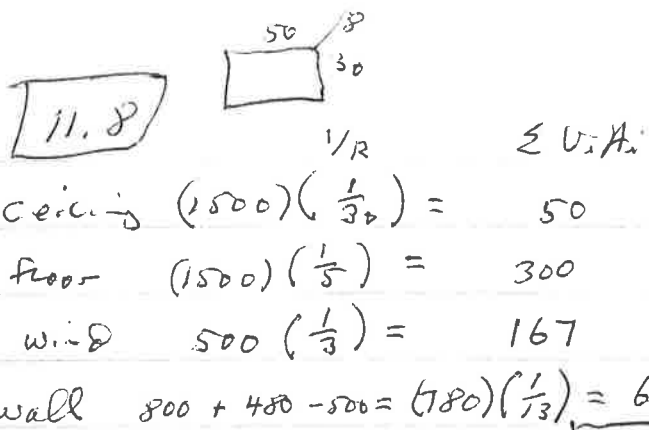 50 8
30
11.8
1/R Σ UiAi
ceiling (1500)(1/30) = 50
floor (1500)(1/5) = 300
wind 500 (1/3) = 167
wall 800 + 480 - 500 = (780)(1/13) = 6